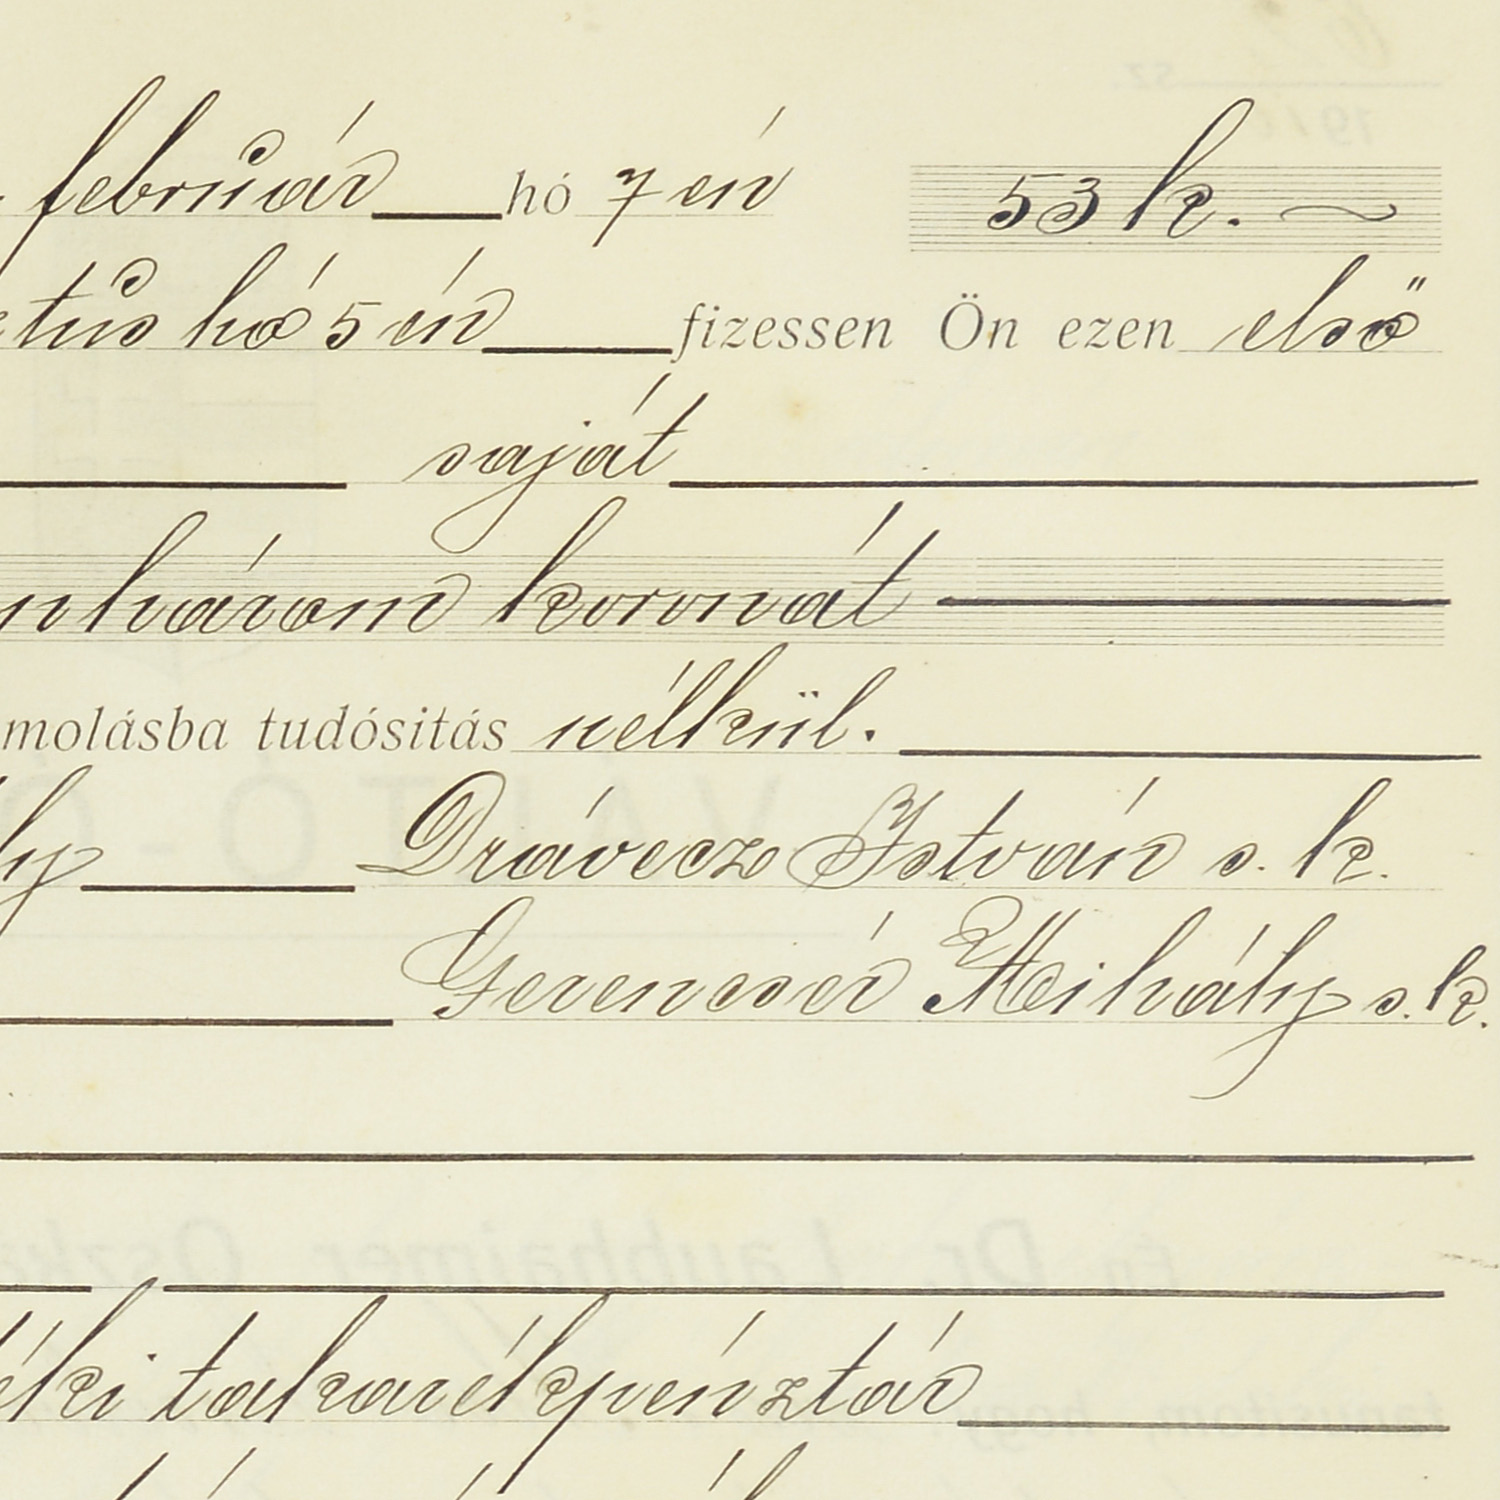 február hó 7 én 53 k.
hó 5 én fizessen Ön ezen első
saját
nhárom koronát
molásba tudósitás nélkül.
ly Drávecz István s. k.
Gerencsér Mihály s. k.
éki takarékpénztár